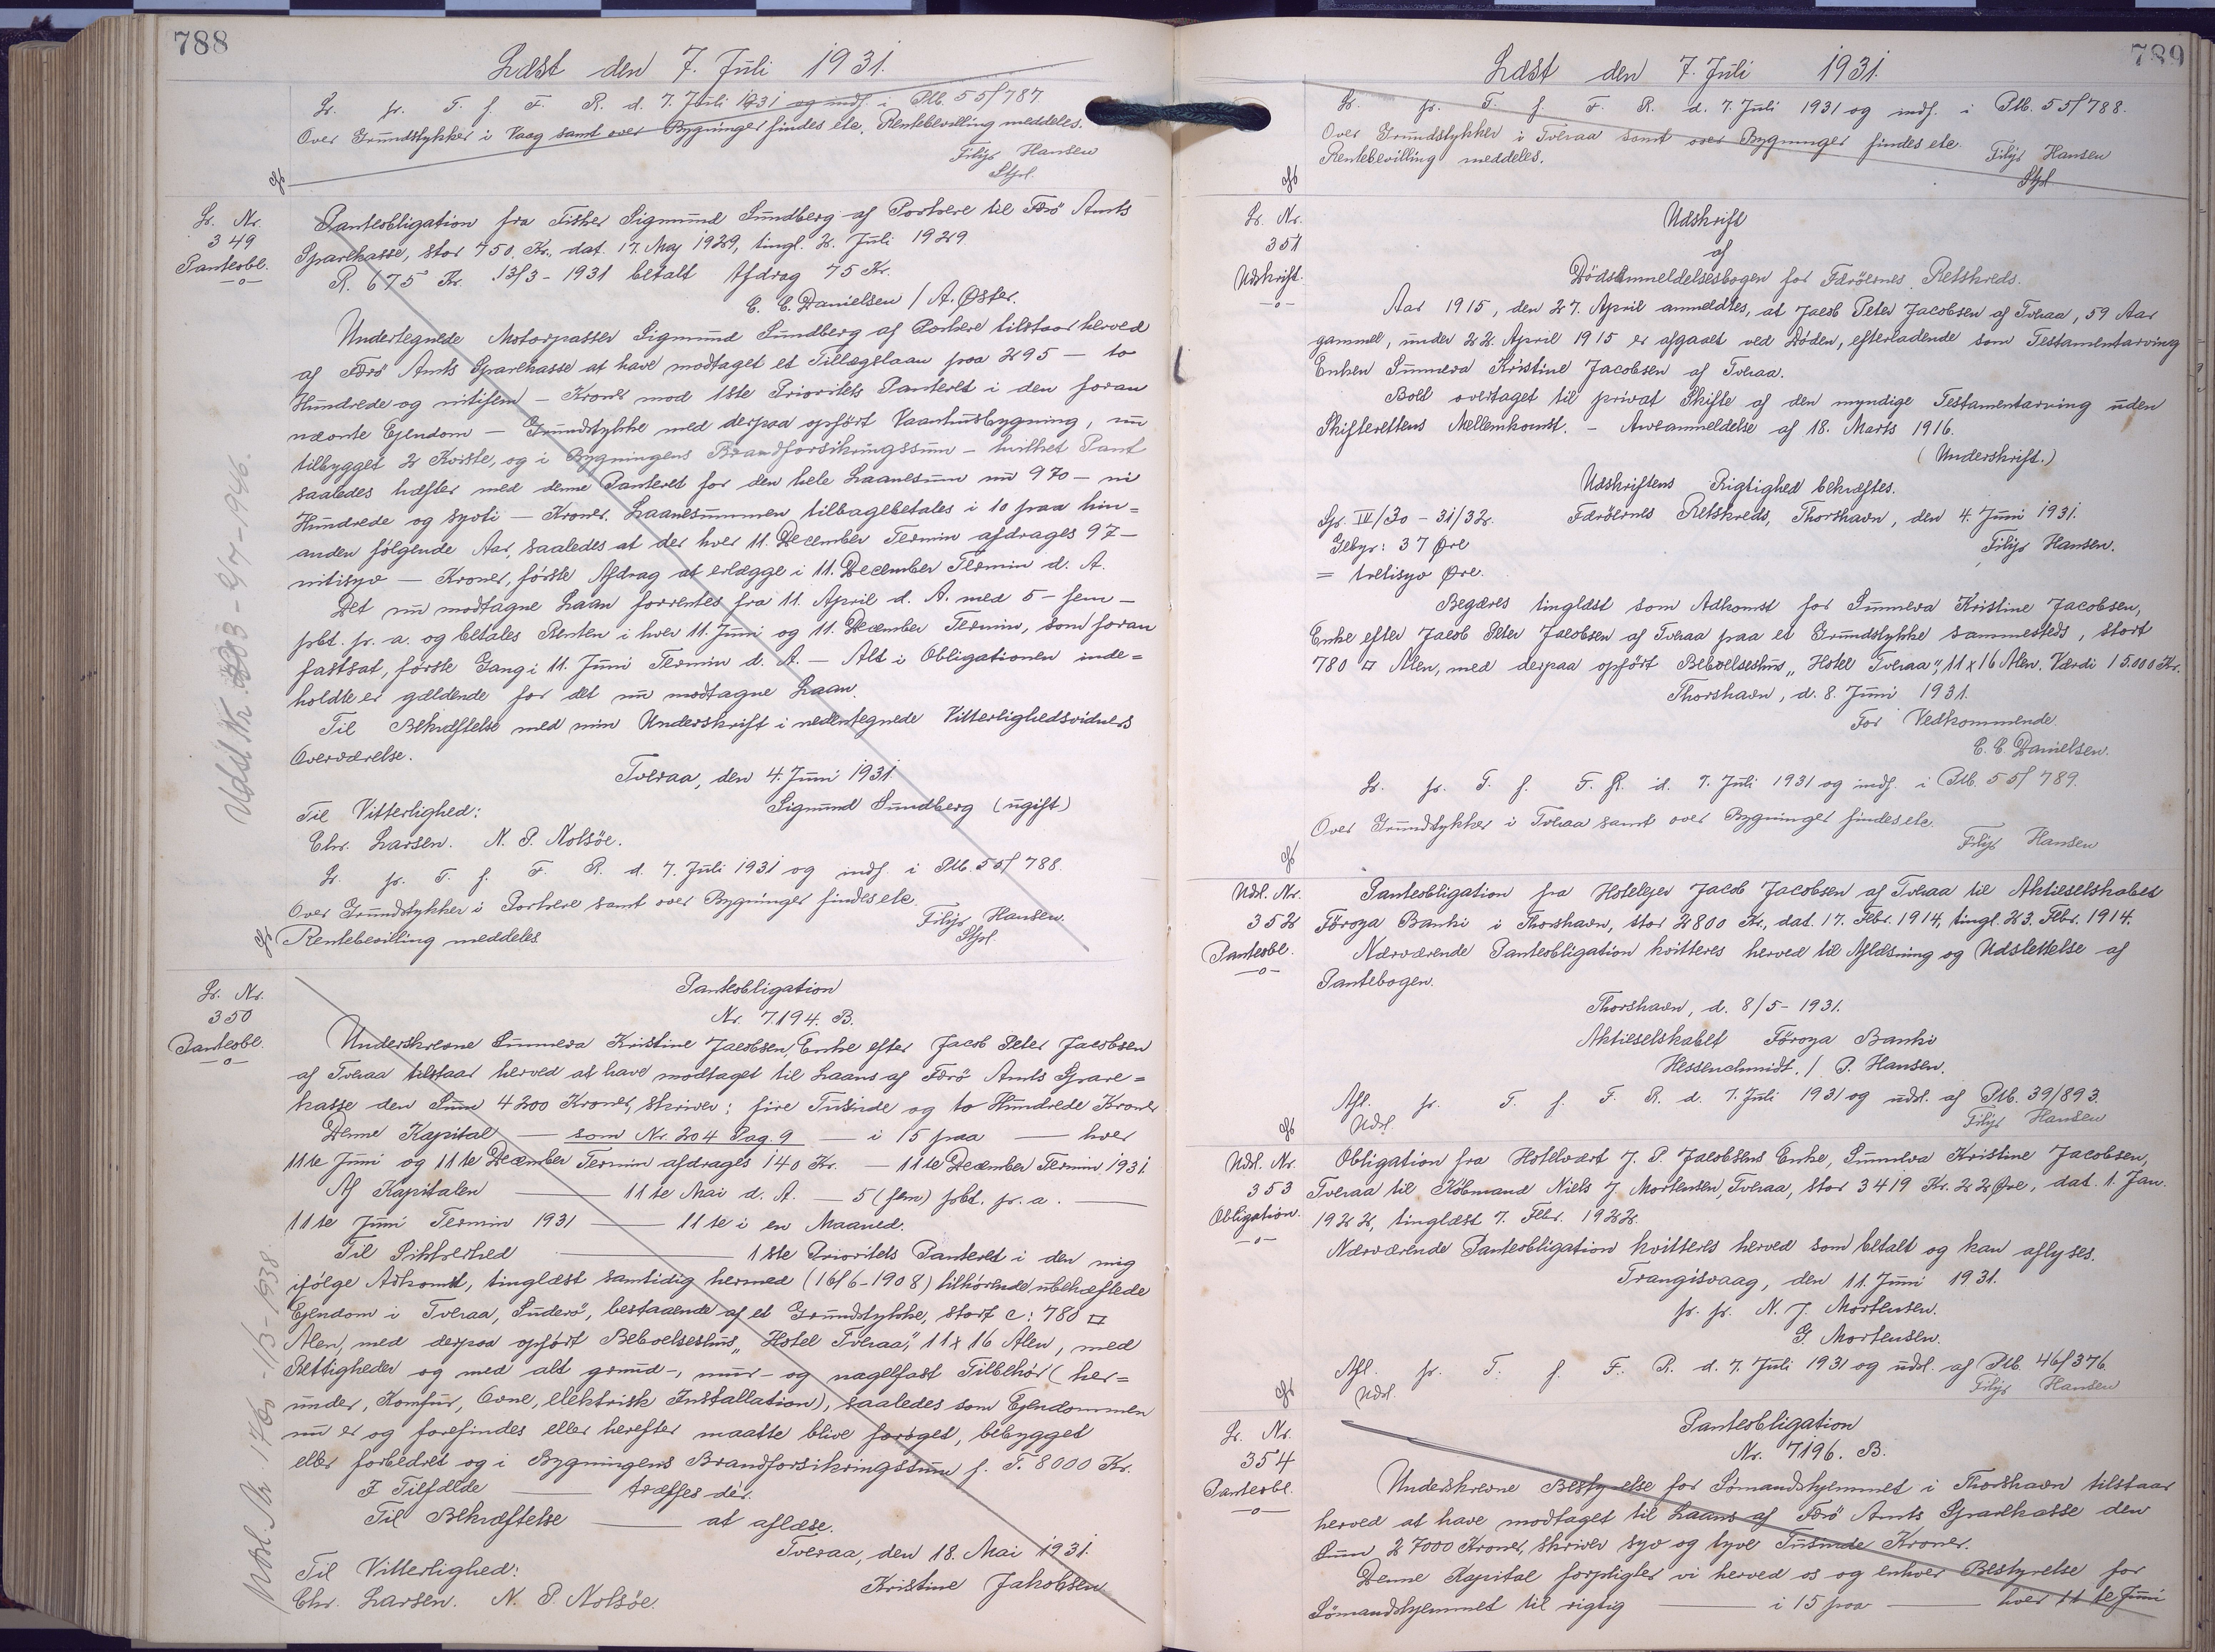 788
Læst den 7. Juli 1931.
Lr. pr. T. f. F. R. d. 7. Juli 1931 og indf. i Ptb. 55/787.
Over Grundstykker i Vaag samt over Bygninger findes etc. Rentebevilling meddeles.
Filip Hansen
Stpl.
Lr. Nr.
349
Panteobl.
Panteobligation fra Fisker Sigmund Sundberg af Porkere til Færö Amts
Sparekasse, stor 750 Kr., dat. 17. Maj 1929, tingl. 2. Juli 1929.
R. 675 Kr. 13/3-1931 betalt Afdrag 75 Kr.
C. C. Danielsen / A. Øster.
Undertegnede Motorpasser Sigmund Sundberg af Porkere tilstaar herved
af Færö Amts Sparekasse at have modtaget et Tillægslaan paa 295 — to
Hundrede og nitifem — Kroner mod 1ste Prioritets Panteret i den foran
nævnte Ejendom — Grundstykke med derpaa opført Vaanhusbygning, nu
tilbygget 2 Kviste, og i Bygningens Brandforsikringssum — hvilket Pant
saaledes hæfter med denne Panteret for den hele Laanesum nu 970 — ni
Hundrede og syvti — Kroner. Laanesummen tilbagebetales i 10 paa hin=
anden fölgende Aar, saaledes at der hver 11. December Termin afdrages 97 —
nitisyv — Kroner, förste Afdrag at erlægge i 11. December Termin d. A.
Det nu modtagne Laan forrentes fra 11. April d. A. med 5 – fem –
pct. pr. a. og betales Renten i hver 11. Juni og 11. December Termin, som foran
fastsat, förste Gang i 11. Juni Termin d. A. — Alt i Obligationen inde=
holdte er gældende for det nu modtagne Laan.
Til Bekræftelse med min Underskrift i nedentegnede Vitterlighedsvidners
Overværelse.
Tveraa, den 4. Juni 1931.
Til Vitterlighed: Sigmund Sundberg (ugift)
Chr. Larsen. N. P. Nolsöe.
Lr. pr. T. f. F. R. d. 7. Juli 1931 og indf. i Ptb. 55/788.
Over Grundstykker i Porkere samt over Bygninger findes etc.
Rentebevilling meddeles. Filip Hansen.
Stpl.
Lr. Nr.
350
Panteobl.
Panteobligation
Nr. 7.194. B.
Underskrevne Sunneva Kristine Jacobsen, Enke efter Jacob Peter Jacobsen
af Tveraa tilstaar herved at have modtaget til Laans af Færö Amts Spare=
kasse den Sum 4200 Kroner, skriver: fire Tusinde og to Hundrede Kroner
Denne Kapital — som Nr. 204 Pag. 9 — i 15 paa — hver
11te Juni og 11te December Termin afdrages 140 Kr. — 11te December Termin 1931.
Af Kapitalen — 11te Mai d. A. — 5 (fem) pct. pr. a. —
11te Juni Termin 1931 — 11te i en Maaned.
Til Sikkerhed — 1ste Prioritets Panteret i den mig
ifölge Adkomst, tinglæst samtidig hermed (16/6-1908) tilhörende ubehæftede
Ejendom i Tveraa, Suderö, bestaaende af et Grundstykke, stort c: 780 □
Alen, med derpaa opført Beboelseshus "Hotel Tveraa", 11 x 16 Alen, med
Rettigheder og med alt grund-, mur- og nagelfast Tilbehör (her=
under, Komfur, Ovne, elektrisk Installation), saaledes som Ejendommen
nu er og forefindes eller herefter maatte blive foröget, bebygget
eller forbedret og i Bygningens Brandforsikringssum f. T. 8000 Kr.
I Tilfælde — træffes dér.
Til Bekræftelse — at aflæse.
Tveraa, den 18. Mai 1931.
Til Vitterlighed: Kristine Jakobsen
Chr. Larsen. N. P. Nolsöe.
789
Læst den 7. Juli 1931.
Lr. pr. T. f. F. R. d. 7. Juli 1931 og indf. i Ptb. 55/788.
Over Grundstykker i Tveraa samt over Bygninger findes etc.
Rentebevilling meddeles. Filip Hansen
Stpl
Lr. Nr.
351
Udskrift.
Udskrift
af
Dödsanmeldelsesbogen for Færöernes Retskreds.
Aar 1915, den 27. April anmeldtes, at Jacob Peter Jacobsen af Tveraa, 59 Aar
gammel, under 22. April 1915 er afgaaet ved Döden, efterladende som Testamentarving
Enken Sunneva Kristine Jacobsen af Tveraa.
Boet overtaget til privat Skifte af den myndige Testamentarving uden
Skifterettens Mellemkomst. – Arveanmeldelse af 18. Marts 1916.
(Underskrift.)
Udskriftens Rigtighed bekræftes.
Spr. IV/30 – 31/32. Færöernes Retskreds, Thorshavn, den 4. Juni 1931.
Gebyr: 37 Øre Filip Hansen.
= tretisyv Øre.
Begæres tinglæst som Adkomst for Sunneva Kristine Jacobsen,
Enke efter Jacob Peter Jacobsen af Tveraa paa et Grundstykke sammesteds, stort
780 □ Alen, med derpaa opført Beboelseshus "Hotel Tveraa", 11 x 16 Alen. Værdi 15.000 Kr.
Thorshavn, d. 8. Juni 1931.
For Vedkommende
C. C. Danielsen.
Lr. pr. T. f. F. R. d. 7. Juli 1931 og indf. i Ptb. 55/789.
Over Grundstykker i Tveraa samt over Bygninger findes etc.
Filip Hansen
Udsl. Nr.
352
Panteobl.
Panteobligation fra Hotelejer Jacob Jacobsen af Tveraa til Aktieselskabet
Föroya Banki i Thorshavn, stor 2800 Kr., dat. 17. Febr. 1914, tingl. 23. Febr. 1914.
Nærværende Panteobligation kvitteres herved til Aflæsning og Udslettelse af
Pantebogen.
Thorshavn, d. 8/5-1931.
Aktieselskabet Föroya Banki
Hessenschmidt. / P. Hansen.
Afl. pr. T. f. F. R. d. 7. Juli 1931 og udsl. af Ptb. 39/893.
Udsl. Filip Hansen
Udsl. Nr.
353
Obligation.
Obligation fra Hotelvært J. P. Jacobsens Enke, Sunneva Kristine Jacobsen,
Tveraa til Köbmand Niels J Mortensen, Tveraa, stor 3419 Kr. 22 Øre, dat. 1. Jan.
1922, tinglæst 7. Febr. 1922.
Nærværende Panteobligation kvitteres herved som betalt og kan aflyses.
Trangisvaag, den 11. Juni 1931.
pr. pr. N. J. Mortensen.
G. Mortensen.
Afl. pr. T. f. F. R. d. 7. Juli 1931 og udsl. af Ptb. 46/376.
Udsl. Filip Hansen
Lr. Nr.
354
Panteobl.
Panteobligation
Nr. 7196. B.
Underskrevne Bestyrelse for Sömandshjemmet i Thorshavn tilstaar
herved at have modtaget til Laans af Færö Amts Sparekasse den
Sum 27000 Kroner, skriver syv og tyve Tusinde Kroner.
Denne Kapital forpligter vi herved os og enhver Bestyrelse for
Sömandshjemmet til rigtig — i 15 paa — hver 11te Juni